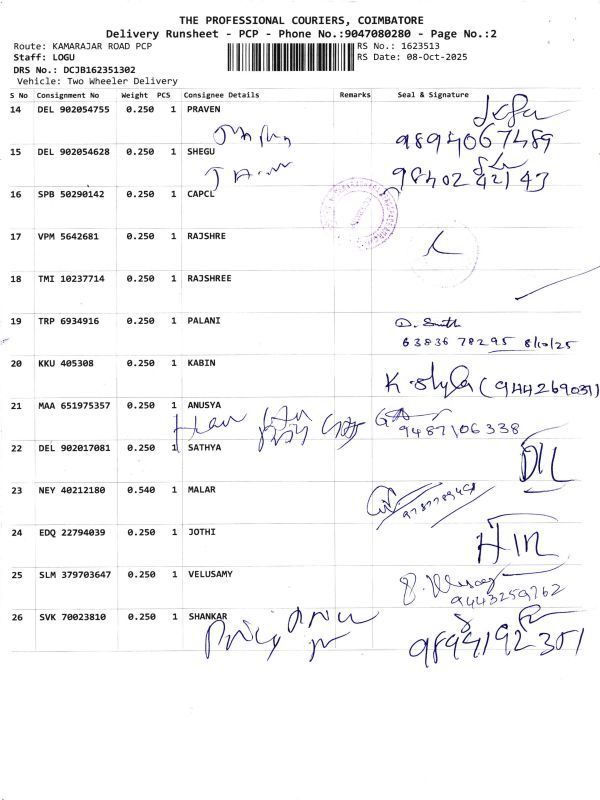 THE PROFESSIONAL COURIERS, COIMBATORE
Delivery Runsheet - PCP - Phone No.:9047080280 - Page No.:2
Route: KAMARAJAR ROAD PCP RS No.: 1623513
Staff: LOGU RS Date: 08-Oct-2025
DRS No.: DCJB162351302
Vehicle: Two Wheeler Delivery
S No Consignment No Weight PCS Consignee Details Remarks Seal & Signature
14 DEL 902054755 0.250 1 PRAVEN
9894067489
15 DEL 902054628 0.250 1 SHEGU
9840242143
16 SPB 50290142 0.250 1 CAPCL
17 VPM 5642681 0.250 1 RAJSHRE
18 TMI 10237714 0.250 1 RAJSHREE
19 TRP 6934916 0.250 1 PALANI
63836 78295 8/10/25
20 KKU 405308 0.250 1 KABIN
21 MAA 651975357 0.250 1 ANUSYA
9487106338
22 DEL 902017081 0.250 1 SATHYA
23 NEY 40212180 0.540 1 MALAR
24 EDQ 22794039 0.250 1 JOTHI
25 SLM 379703647 0.250 1 VELUSAMY
9443259762
26 SVK 70023810 0.250 1 SHANKAR